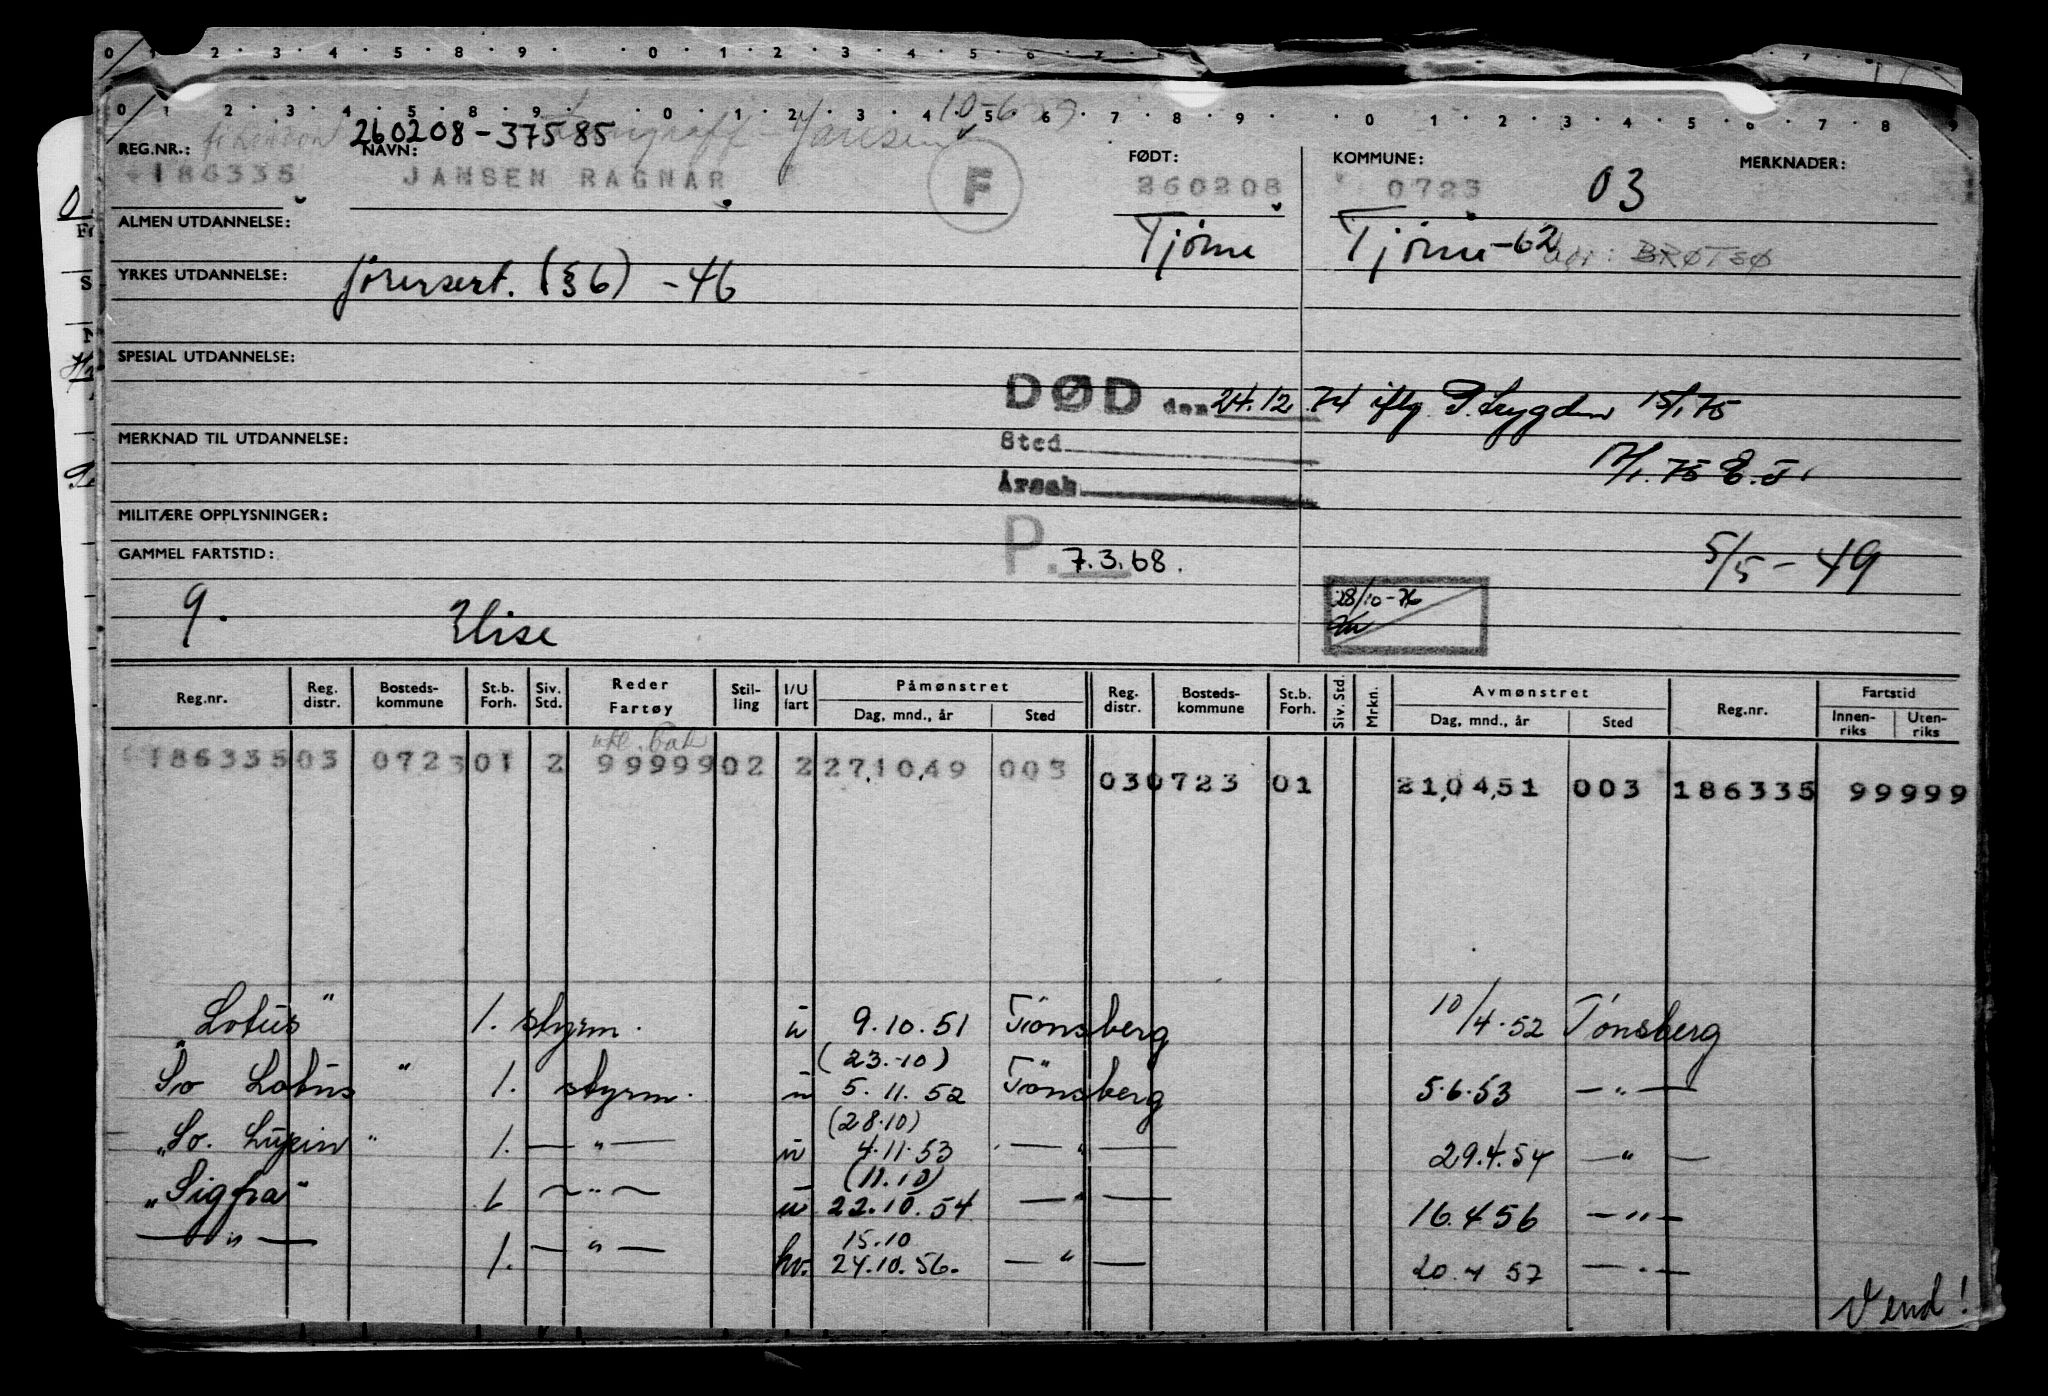 0 1 2 3 4 5 6 7 8 9 0 1 2 3 4 5 6 7
0 1 2 3 4 5 6 7 8 9 0 1 2 3 4 5 6 7 8 9 0 1 2 3 4 5 6 7 8 9
260208-37585 Jansen 10-6-59
REG.NR.: NAVN: FØDT: KOMMUNE: MERKNADER:
186335 JANSEN RAGNAR F 260208 0723 03
ALMEN UTDANNELSE: Tjøme Tjøme-62 BRØTSØ
YRKES UTDANNELSE: førersert. (§6) -46
SPESIAL UTDANNELSE:
DØD den 24.12.74 iflg. P. Lygden 15/1 75
MERKNAD TIL UTDANNELSE: Sted
17/1.75 E.J.
Årsak
MILITÆRE OPPLYSNINGER:
GAMMEL FARTSTID: P. 7.3.68. 5/5-49
28/10-76
9. Elise
Reg.nr. Reg. distr. Bosteds-kommune St.b. Forh. Siv. Std. Reder Fartøy Stil-ling I/U fart Påmønstret Dag, mnd., år Sted Reg. distr. Bosteds-kommune St.b. Forh. Siv. Std. Mrkn. Avmønstret Dag, mnd., år Sted Reg.nr. Fartstid Innen-riks Uten-riks
186335 03 0723 01 2 99999 02 2 27,10,49 003 03 0723 01 21,04,51 003 186335 99999
„Lotus" 1. styrm. u 9.10.51 Tönsberg 10/4.52 Tønsberg
(23.-10)
So Lotus " 1. styrm. u 5.11.52 Tönsberg 5.6.53 —"—
(28.10)
„So. Lupin" 1. —"— u 4.11.53 —"— 29.4.54 —"—
(11.10)
„Sigfra" 1. —"— u 22.10.54 —"— 16.4 56 —"—
15.10
—"— 1. —"— hv. 24.10.56. —"— 20.4 57 —"—
Vend!